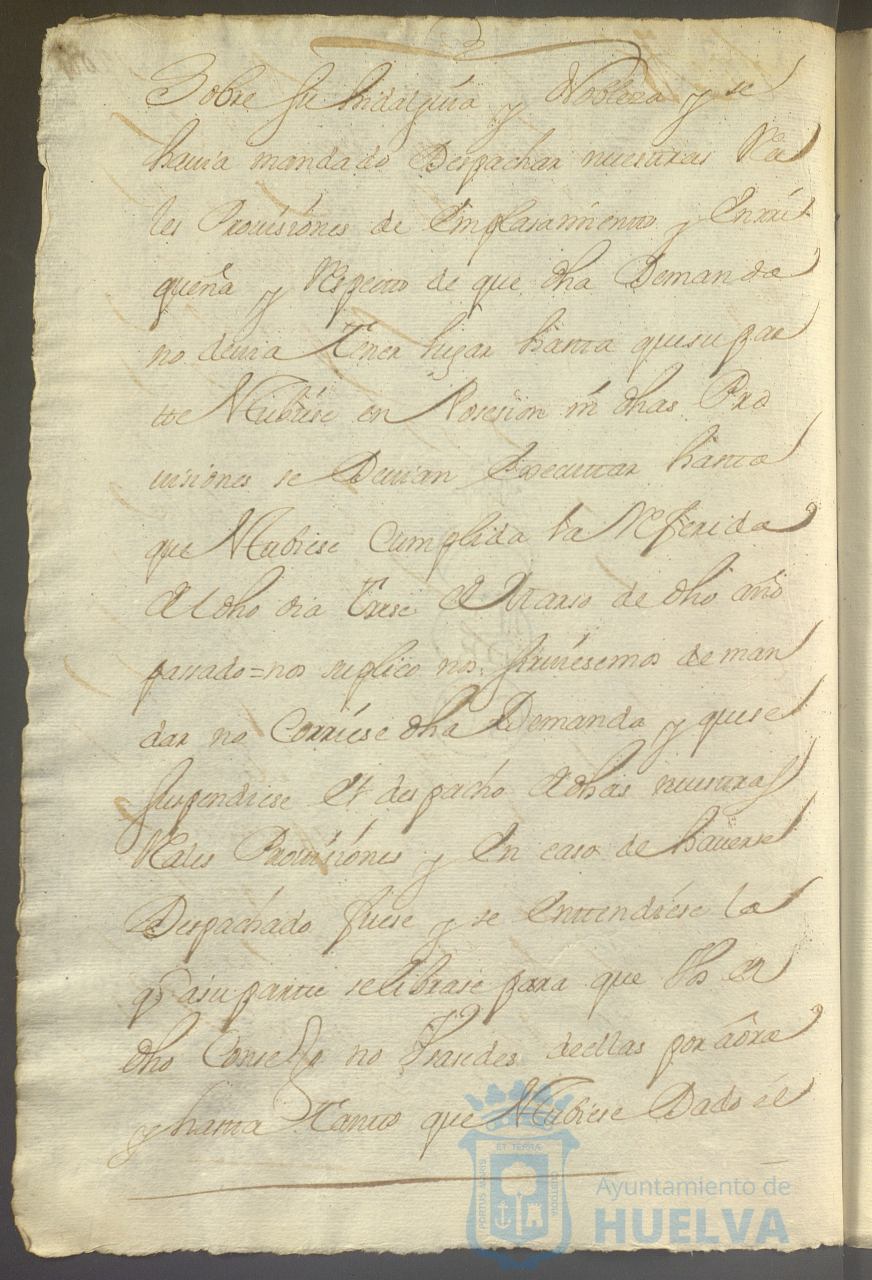 Sobre su hidalguia y Nobleza y se
hauia mandado Despachar nuestras Rea
les Prouisiones de Emplasamiento y Enrri
queña y Respecto de que dha Demanda
no deuia Tener lugar hasta quesu par
te estubiese en Posesion ni dhas Pro
uisiones se Deuian Executar hasta
que estubiese Cumplida la Referida
del dho dia Trese de Marso de dho año
passado=nos suplico nos siruiesemos de man
dar no Corriese dha Demanda y quese
suspendiese el despacho de dhas nuestras
Reales Prouisiones y en caso de hauerse
Despachado fuese y se enttendiese la
q asu parte selibrase para que Vs en
dho Consejo no Vsasedes deellas por aora
y hasta Tanto que estubiese Dado el
PORTUS MARIS
ET TERRÆ
CUSTODIA
Ayuntamiento de
HUELVA